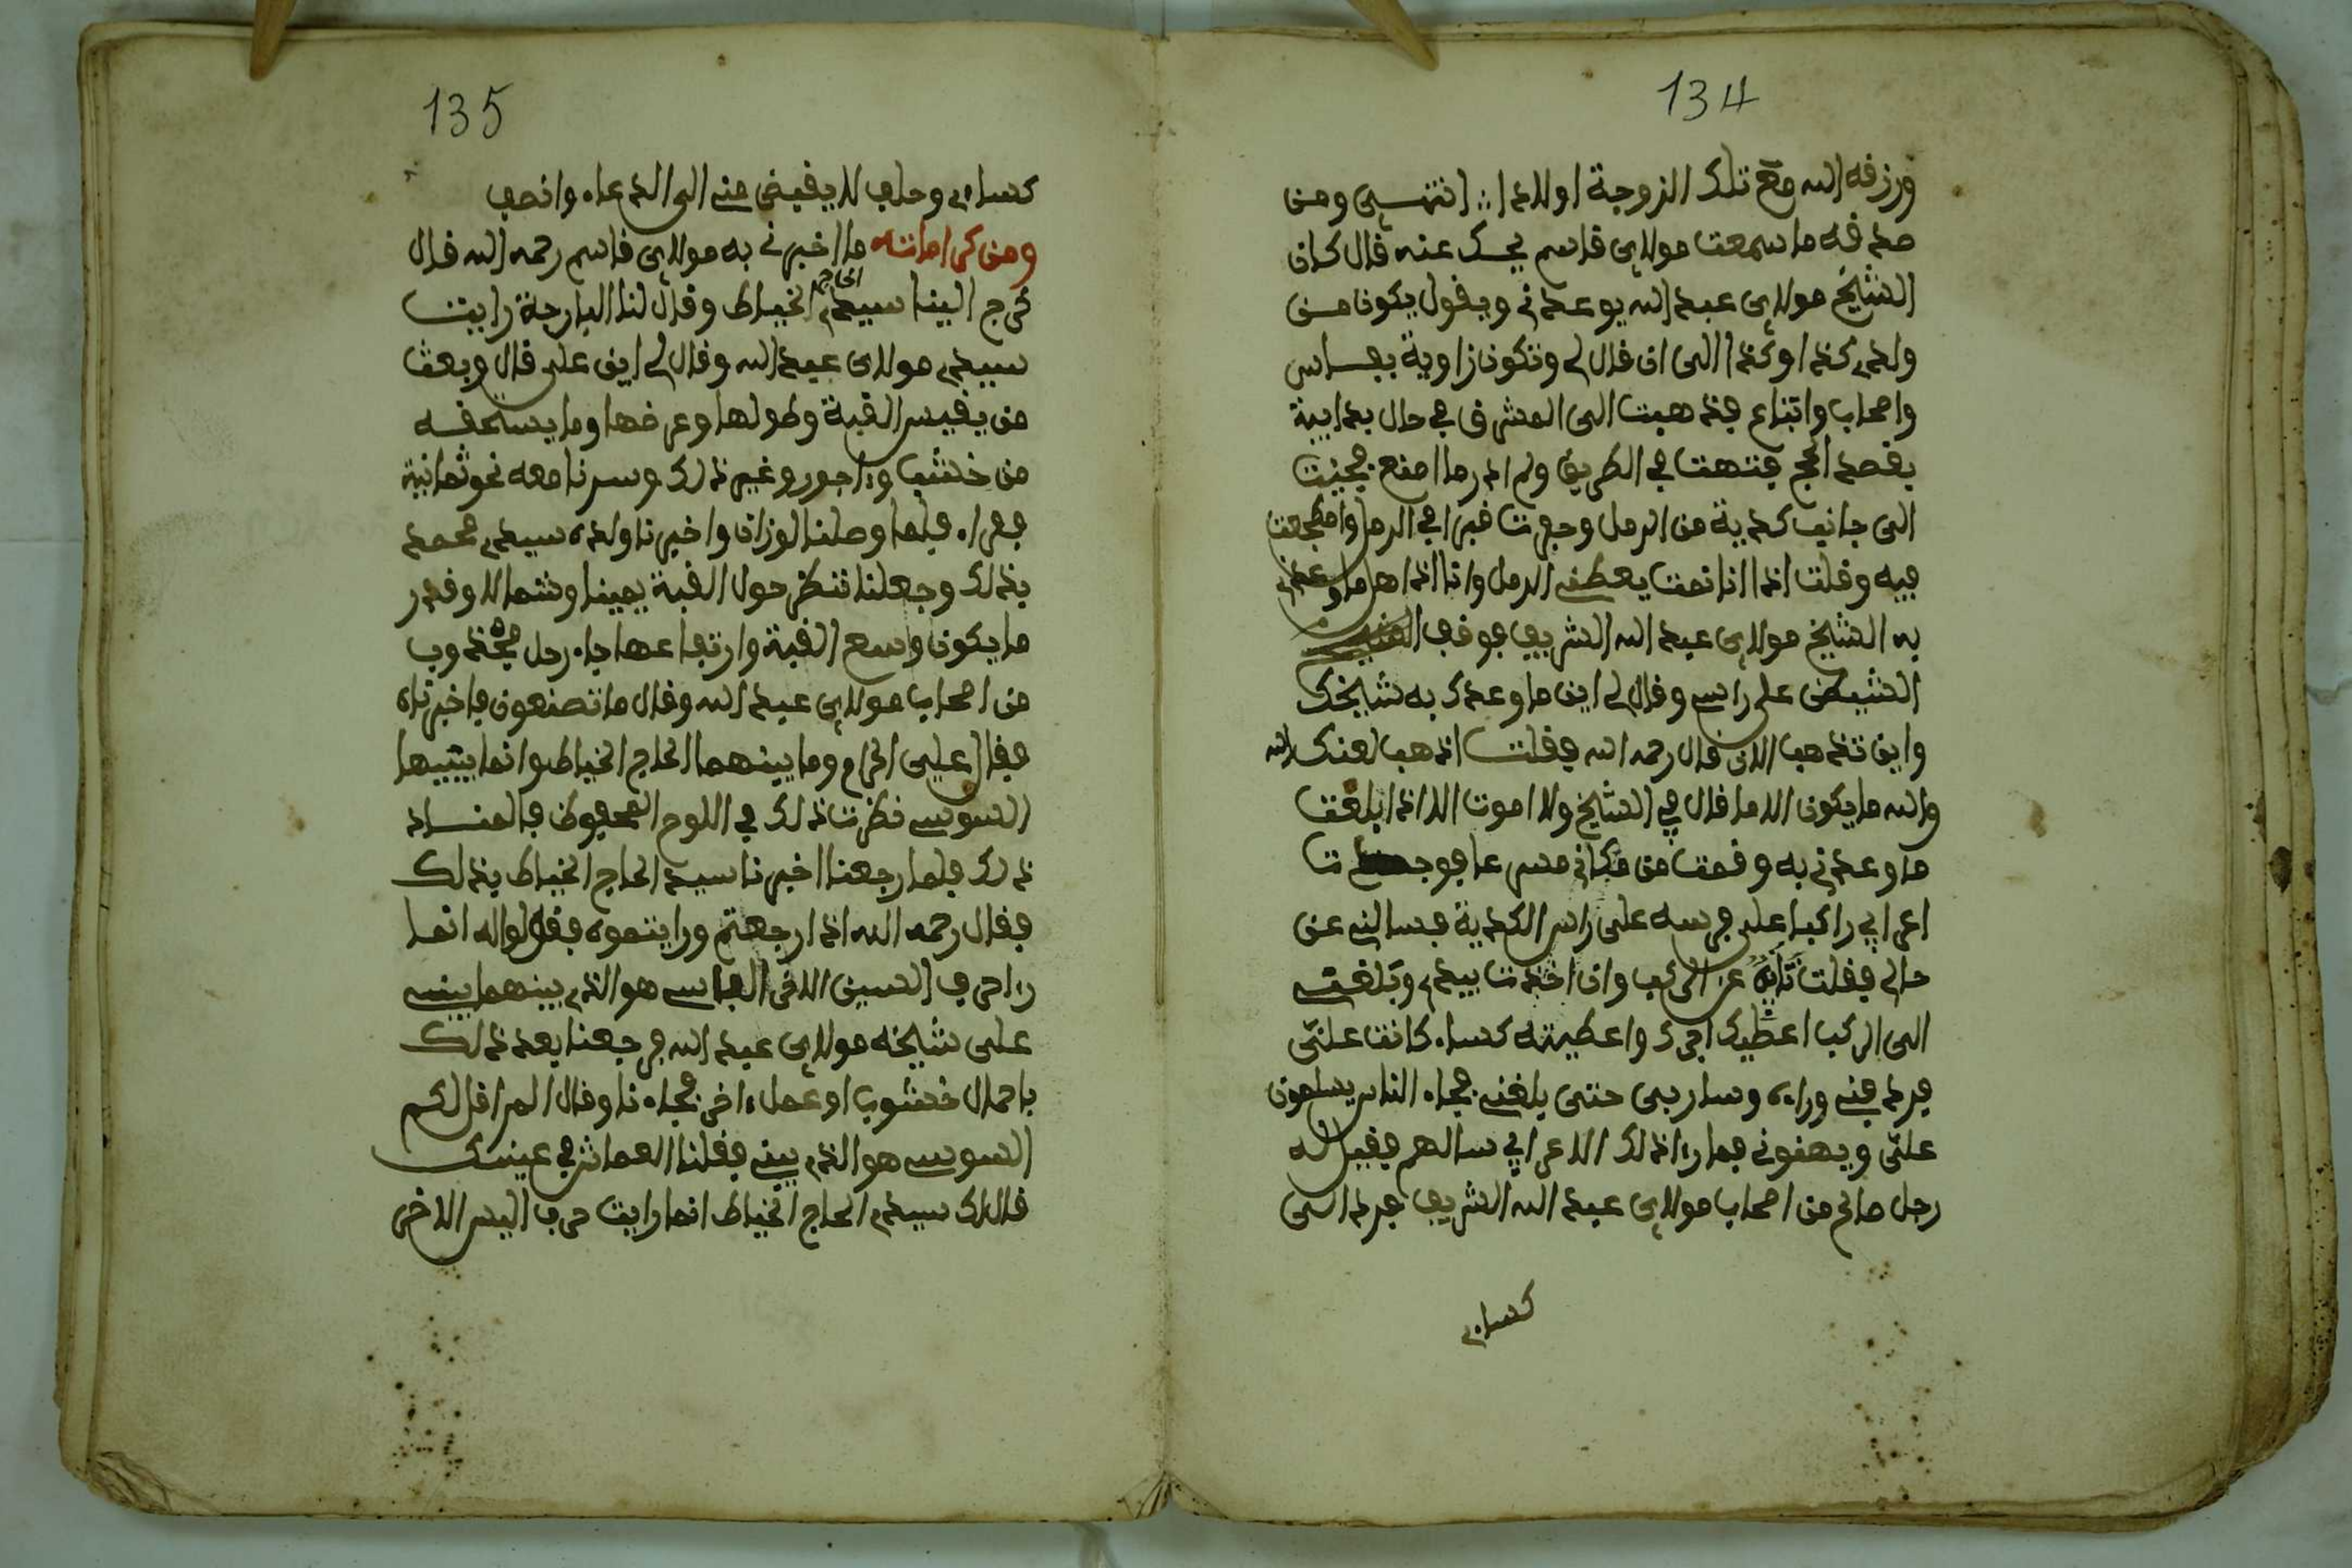 134
ورزقه الله مع تلك الزوجة اولادا انتهى ومن
صدقه ما سمعت مولاي قاسم يحك عنه قال كان
الشيخ مولاي عبد الله يوعدني ويقول يكون من
ولدي كذا وكذا الى ان قال لي وتكون زاوية بفاس
واصحاب واتباع فذهبت الى المشرق في حال بدايية
بقصد الحج فتهت في الطريق ولم ادر ما اصنع فجيت
الى جانب كدية من الرمل وحفرت قبرا في الرمل واضطجعت
فيه وقلت اذا انا نمت يعطني الرمل وانا اذا هاما وعدني
به الشيخ مولاي عبد الله الشريف فوقف
الشيخ على راسي وقال لي اين ما وعدك به شيخك
واين تذهب الان قال رحمه الله فقلت اذهب لعنك الله
والله ما يكون الا ما قال في الشيخ ولا اموت الا اذا بلغت
ما وعدني به وقمت من مكاني مسرعا فوجدت
اعرابي راكبا على فرسه على راس الكدية فسالني عن
حالي فقلت تايه عن الركب وان اخذت بيدي وبلغتني
الى الركب اعطيك اجرك واعطيته كساء كانت علي
فردفني وراءه وسار بي حتى بلغني فجاء الناس يسلمون
علي ويهنوني فلما راا ذلك الاعرابي سالهم فقيل له
رجل صالح من اصحاب مولاي عبد الله الشريف فرد الي
كساءي
135
كساءي وحلف لا يقيض مني الى الدعاء وانصف
ومن كراماته ما اخبرني به مولاي قاسم رحمه الله قال
خرج الينا سيدي الحاج الخياط وقال لنا البارحة رايت
سيدي مولاي عبد الله وقال لي ابن علي قال وبعث
من يقيس القبة وطولها وعرضها وما يستحقه
من خشب وءاجور وغير ذلك وسرنا معه نحو ثمانية
فقراء فلما وصلنا لوزان واخبرنا ولده سيدي محمد
بذلك وجعلنا ننظر حول القبة يمينا وشمالا وقدر
ما يكون واسع القبة وارتفاعها جاء رجل مجذوب
من اصحاب مولاي عبد الله وقال ما تصنعون فاخبرناه
فقال علي الحرام وما يبنهما الحاج الخياط وانما يبنيها
السوسي نظرت ذلك في اللوح المحفوظ فالمنساد
ذلك فلما رجعنا اخبرنا سيد الحاج الخياط بذلك
فقال رحمه الله اذا رجعتم ورايتموه فقولوا له انما
راا حرف السين الاخر الفاسي هو الذي بينهما يبني
على شيخه مولاي عبد الله فرجعنا بعد ذلك
باحمال خشوب او عمل ءاخر فجاءنا وقال الم اقل لكم
السوسي هو الذي يبني فقلنا العماش في عينك
قال لك سيدي الحاج الخياط انما رايت حرف السين الاخر